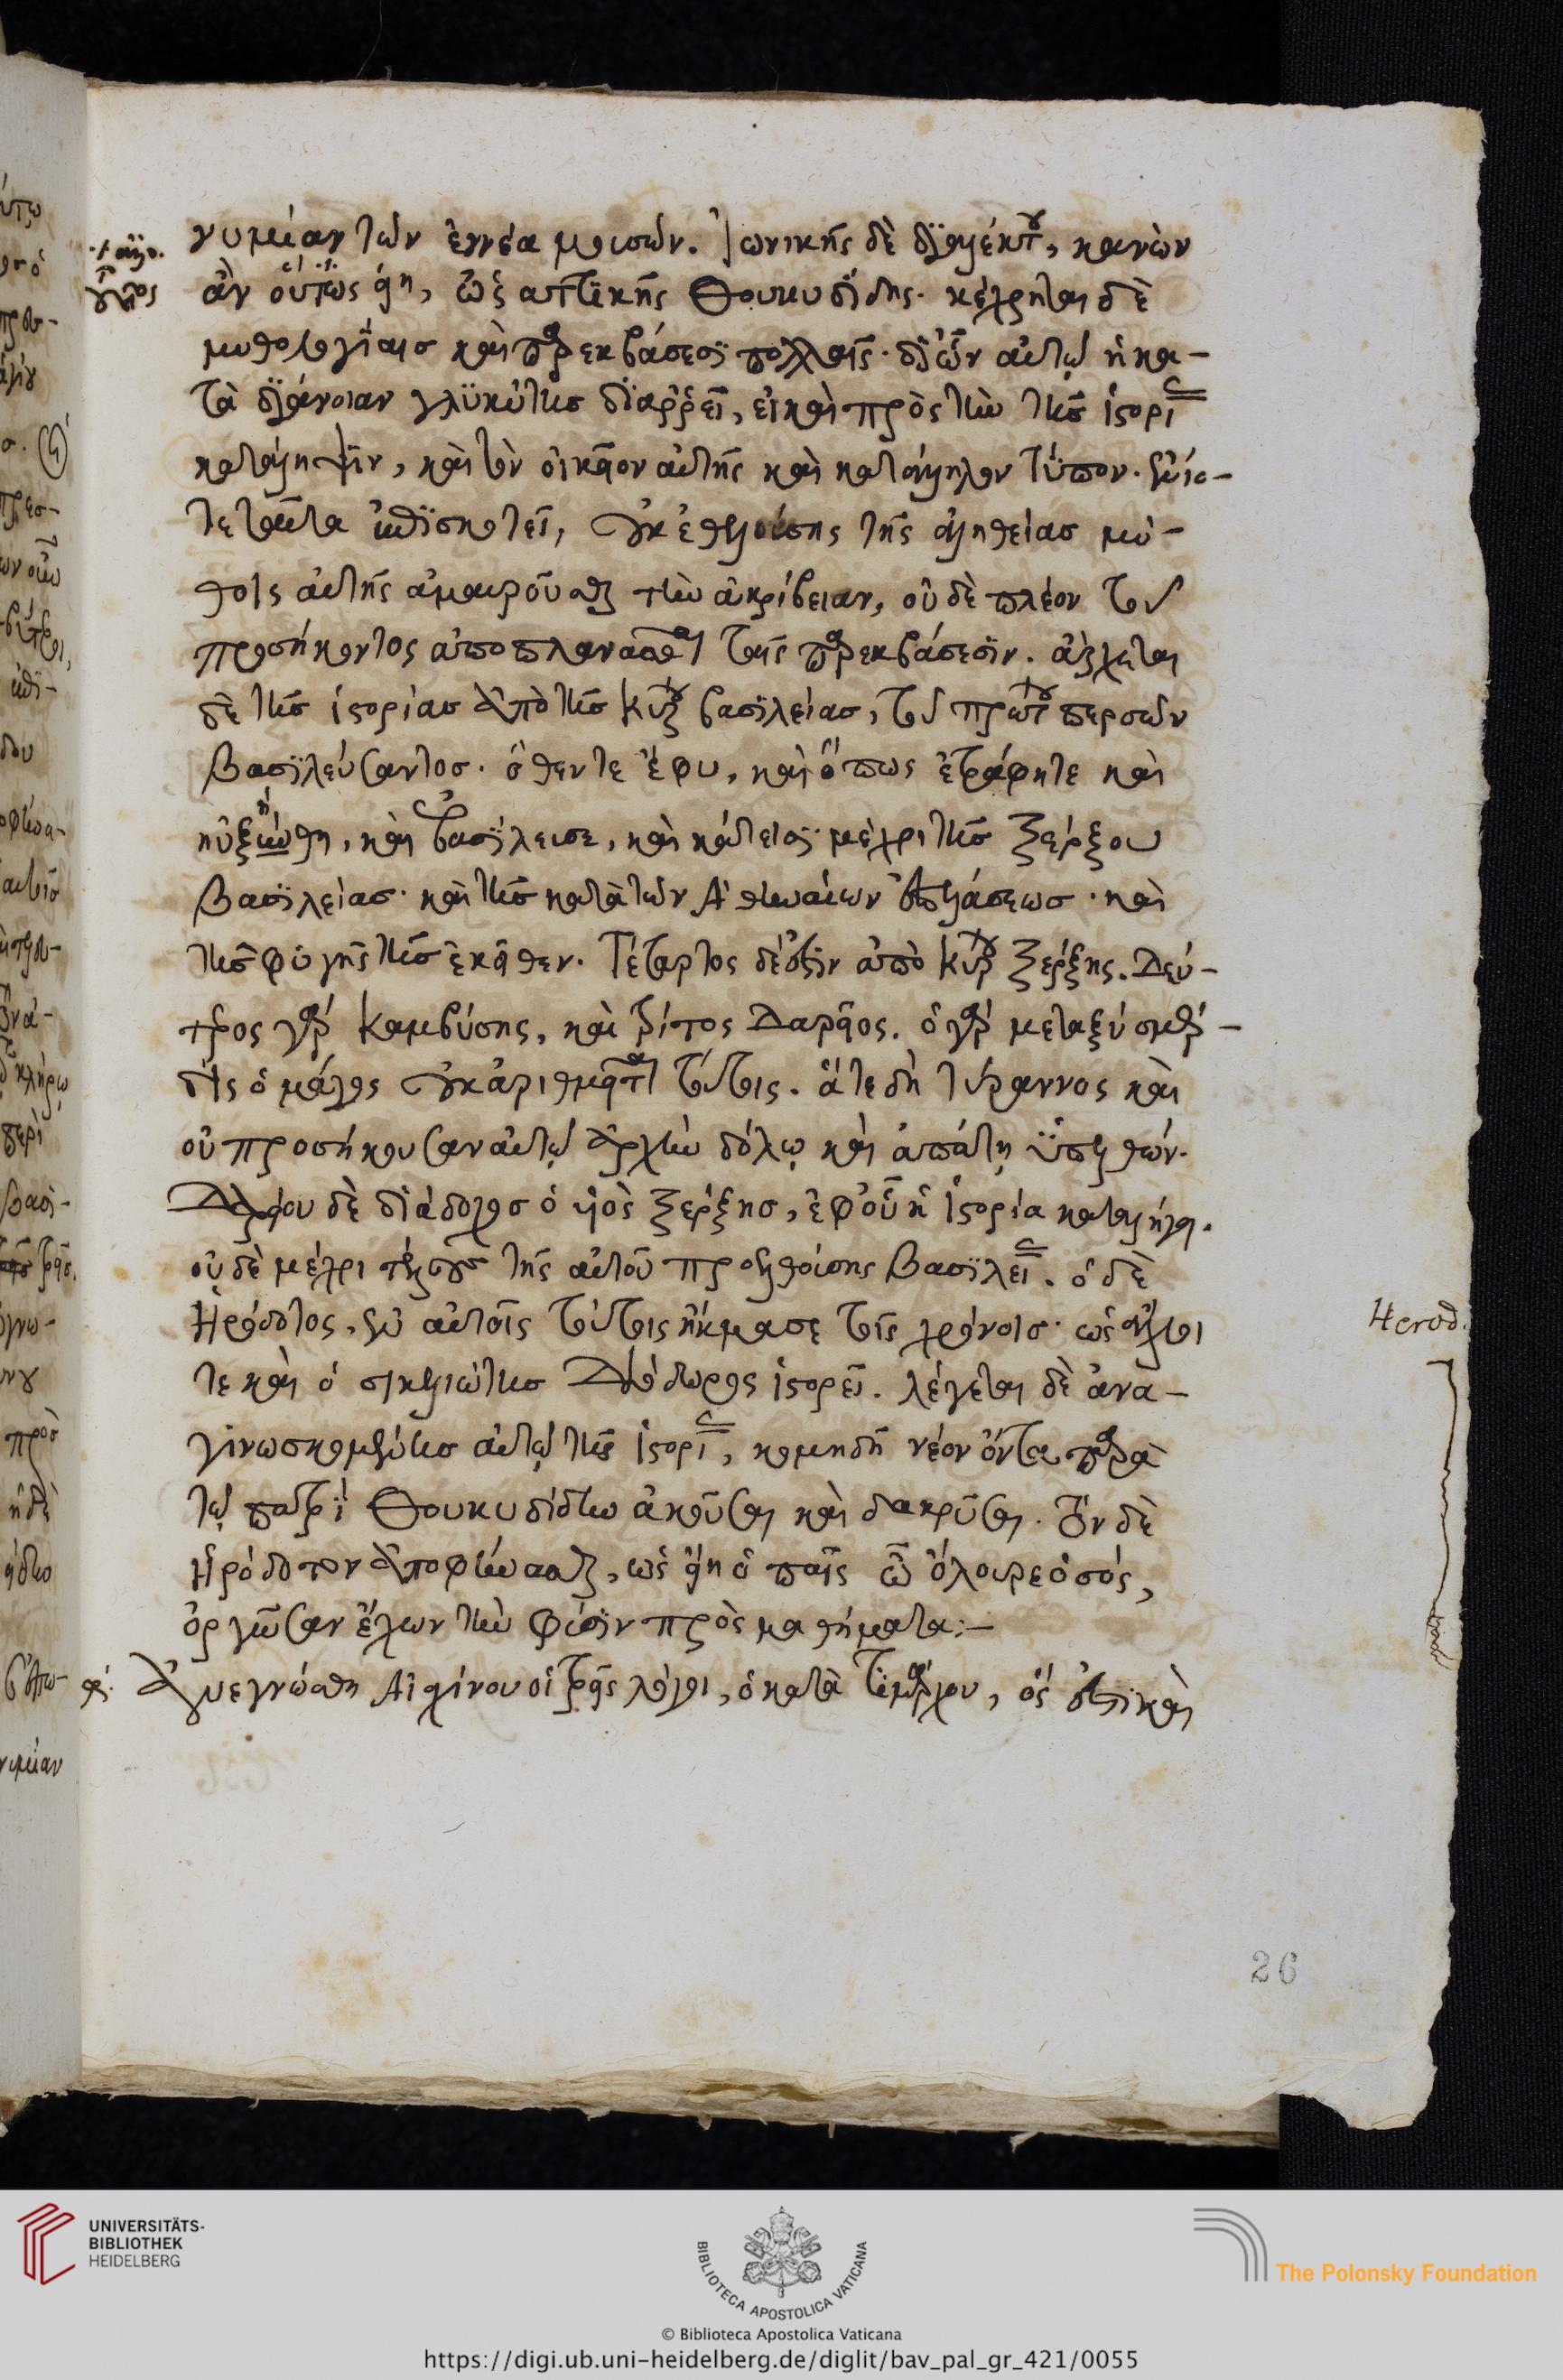 νυμίαν τῶν ἐννέα μουσῶν. Ἰωνικῆς δὲ διαλέκτου, κανὼν
ἂν οὕτως εἴη, ὡς ἀττικῆς Θουκυδίδης. κέχρηται δὲ
μυθολογίαις καὶ παρεκβάσεσι πολλαῖς. δι' ὧν αὐτῷ ἡ κα-
τὰ διάνοιαν γλυκύτης διαρρεῖ, εἰ καὶ πρὸς τὴν τῆς ἱστορίας
κατάληψιν, καὶ τὸν οἰκεῖον αὐτῆς καὶ κατάλληλον τύπον. ἐνίο-
τε ταῦτα ἐπισκοτεῖ, οὐκ ἐθελούσης τῆς ἀληθείας μύ-
θοις αὐτῆς ἀμαυροῦσθαι τὴν ἀκρίβειαν, οὐδὲ πλέον τοῦ
προσήκοντος ἀποπλανᾶσθαι ταῖς παρεκβάσεσιν. ἄρχεται
δὲ τῆς ἱστορίας ἀπὸ τῆς Κύρου βασιλείας, τοῦ πρώτου περσῶν
βασιλεύσαντος. ὅθεν τε ἔφυ, καὶ ὅπως ἐτράφη τε καὶ
ηὐξήθη, καὶ ἐβασίλευσε, καὶ κάτεισι μέχρι τῆς Ξέρξου
βασιλείας. καὶ τῆς κατὰ τῶν Ἀθηναίων ἐπελάσεως. καὶ
τῆς φυγῆς τῆς ἐκεῖθεν. Τέταρτος δέ ἐστιν ἀπὸ Κύρου Ξέρξης. Δεύ-
τερος γὰρ Καμβύσης, καὶ τρίτος Δαρεῖος. ὁ γὰρ μεταξὺ σμέρ-
δις ὁ μάγος οὐκ ἀριθμεῖται τούτοις. ἅτε δὴ τύραννος καὶ
οὐ προσήκουσαν αὐτῷ ἀρχὴν δόλῳ καὶ ἀπάτῃ ὑπελθών.
Δαρείου δὲ διάδοχος ὁ υἱὸς Ξέρξης, ἐφ' οὗ ἡ ἱστορία καταλήγει.
οὐδὲ μέχρι τέλους τῆς αὐτοῦ προελθούσης βασιλείας. ὁ δὲ
Ἡρόδοτος, ἐν αὐτοῖς τούτοις ἤκμασε τοῖς χρόνοις. ὡς ἄλλοι
τε καὶ ὁ σικελιώτης Διόδωρος ἱστορεῖ. λέγεται δὲ ἀνα-
γινωσκομένης αὐτῷ τῆς ἱστορίας, κομιδῇ νέον ὄντα παρὰ
τῷ πατρὶ Θουκυδίδην ἀκοῦσαι καὶ δακρῦσαι. τὸν δὲ
Ἡρόδοτον ἀποφήνασθαι, ὡς εἴη ὁ παῖς ὦ ὄλουρε ὁ σός,
ὀργῶσαν ἔχων τὴν φύσιν πρὸς μαθήματα:–
Ἀνεγνώσθη Αἰσχίνου οἱ τρεῖς λόγοι, ὁ κατὰ Τιμάρχου, ὅς ἐστι καὶ
Herod.
26
UNIVERSITÄTS-
BIBLIOTHEK
HEIDELBERG
BIBLIOTECA APOSTOLICA VATICANA
The Polonsky Foundation
© Biblioteca Apostolica Vaticana
https://digi.ub.uni-heidelberg.de/diglit/bav_pal_gr_421/0055